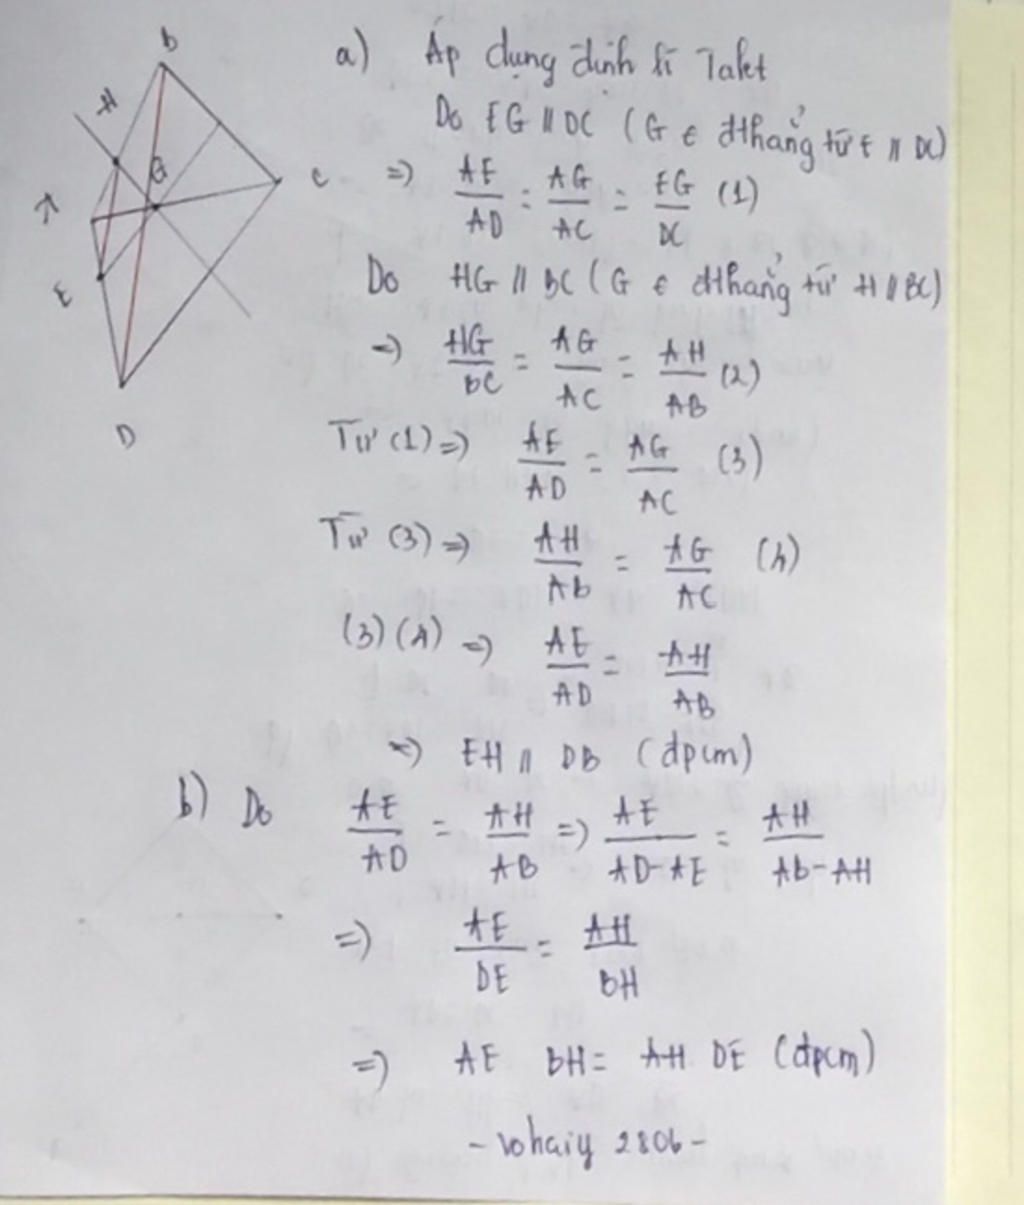 B
H
G
C
A
E
D
a) Áp dụng định lí Talet
Do EG // DC (G ∈ đthẳng từ E // DC)
=> AE/AD = AG/AC = EG/DC (1)
Do HG // BC (G ∈ đthẳng từ H // BC)
=> HG/BC = AG/AC = AH/AB (2)
Từ (1) => AE/AD = AG/AC (3)
Từ (3) => AH/AB = AG/AC (4)
(3) (4) => AE/AD = AH/AB
=> EH // DB (đpcm)
b) Do AE/AD = AH/AB => AE/AD-AE = AH/AB-AH
=> AE/DE = AH/BH
=> AE BH = AH. DE (đpcm)
- vohaiy 2806 -